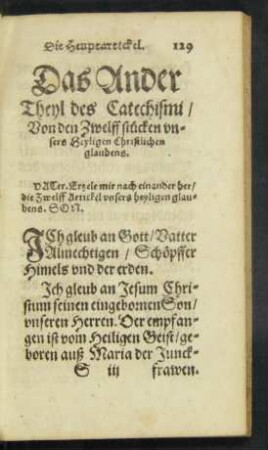 Die Heuptartickel. 129
Das Ander
Theyl des Catechismi /
Von den Zwelff stücken vn-
sers Heyligen Christlichen
glaubens.
VATer. Erzele mir nach einander her/
die Zwelff Artickel vnsers heyligen glau-
bens. SON.
ICh gleub an Gott/Vatter
Almechtigen / Schöpffer
Himels vnd der erden.
Ich gleub an Jesum Chri-
stum seinen eingebornen Son/
vnseren Herren. Der empfan-
gen ist vom Heiligen Geist/ge-
boren auß Maria der Junck-
S iij frawen.